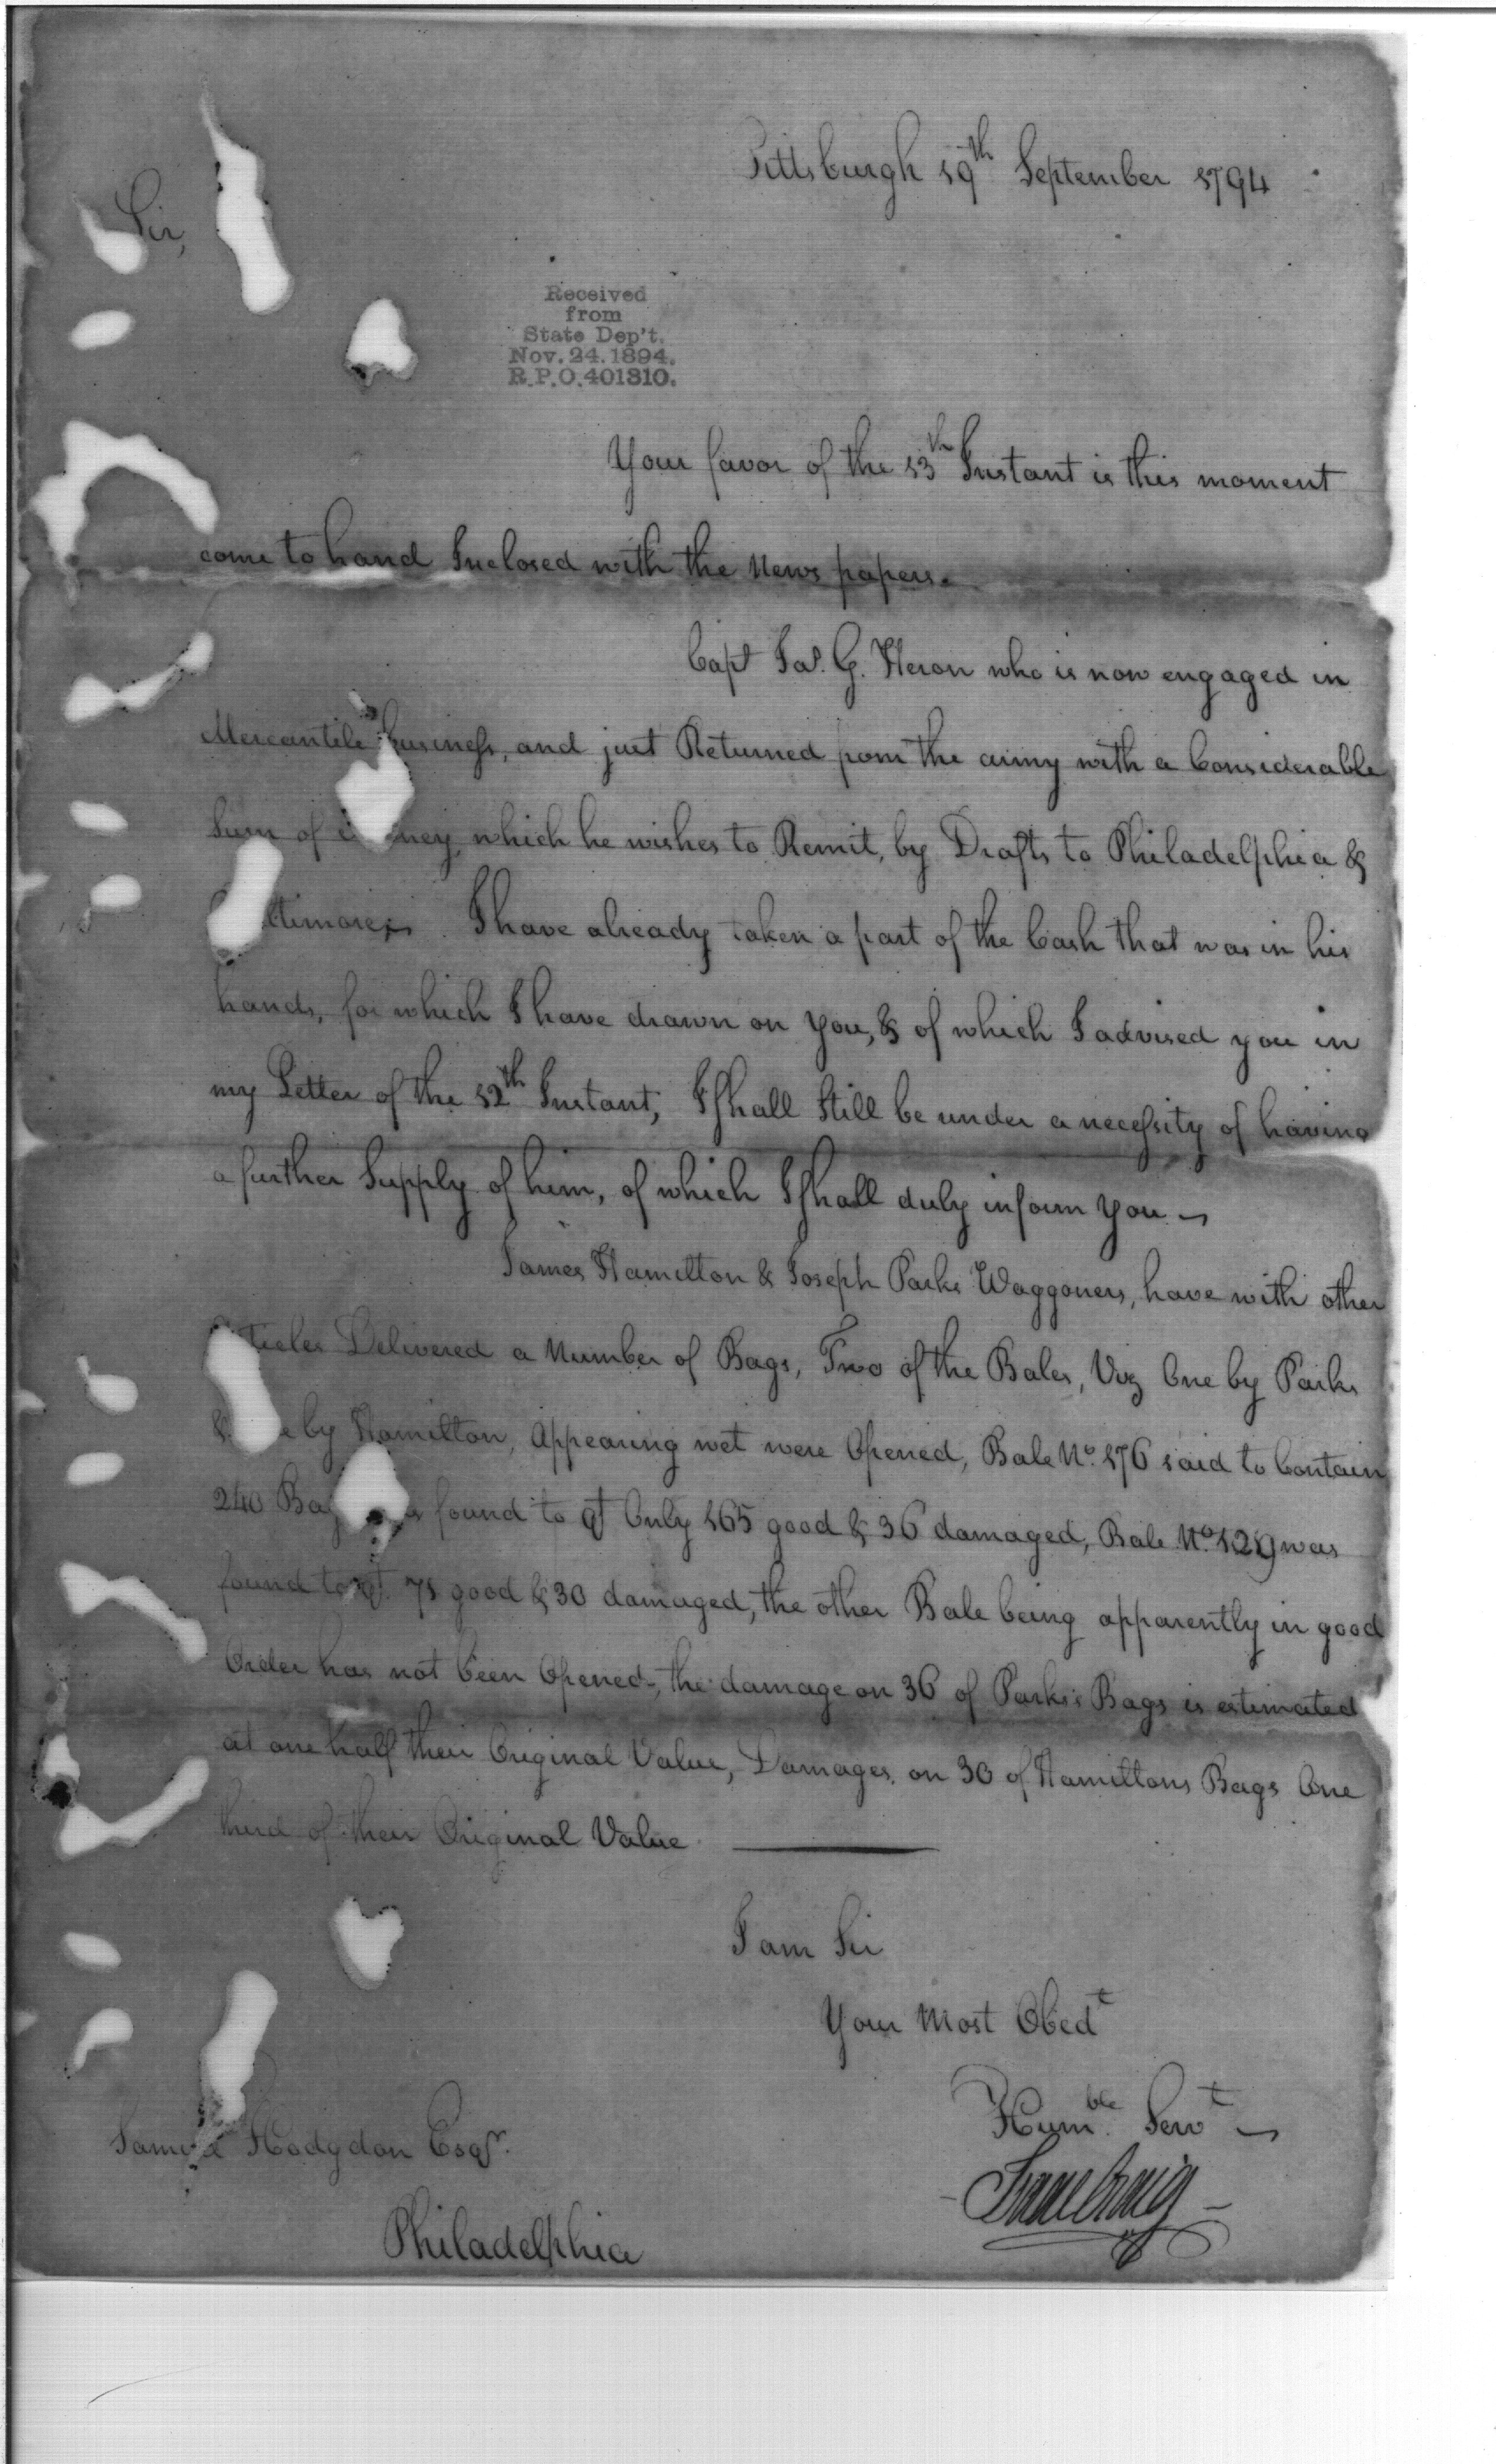 Pittsburgh 19th September 1794
Sir,
Received
from
State Dep't.
Nov. 24. 1894.
R.P.O. 401310.
Your favor of the 13th Instant is this moment
come to hand Inclosed with the News papers.
Capt Jas. G. Heron who is now engaged in
Mercantile business, and just Returned from the army with a Considerable
Sum of money, which he wishes to Remit, by Drafts to Philadelphia &
ltimore. I have already taken a part of the Cash that was in his
hands, for which I have drawn on you, & of which I advised you in
my Letter of the 12th Instant, I shall Still be under a necessity of having
a further Supply of him, of which I shall duly inform you
James Hamilton & Joseph Parks Waggoners, have with other
ticles Delivered a Number of Bags, Two of the Bales, Viz One by Parks
& e by Hamilton, Appearing wet were Opened, Bale No. 176 said to Contain
240 Bag found to Only 165 good & 36 damaged, Bale No. 129 was
found to 71 good & 30 damaged, the other Bale being apparently in good
Order has not been Opened, the damage on 36 of Parks's Bags is estimated
at one half their Original Value, Damages on 30 of Hamiltons Bags One
third of their Original Value
I am Sir
Your Most Obedt
Humble. Servt
Isaac Craig
Samuel Hodgdon Esqr.
Philadelphia